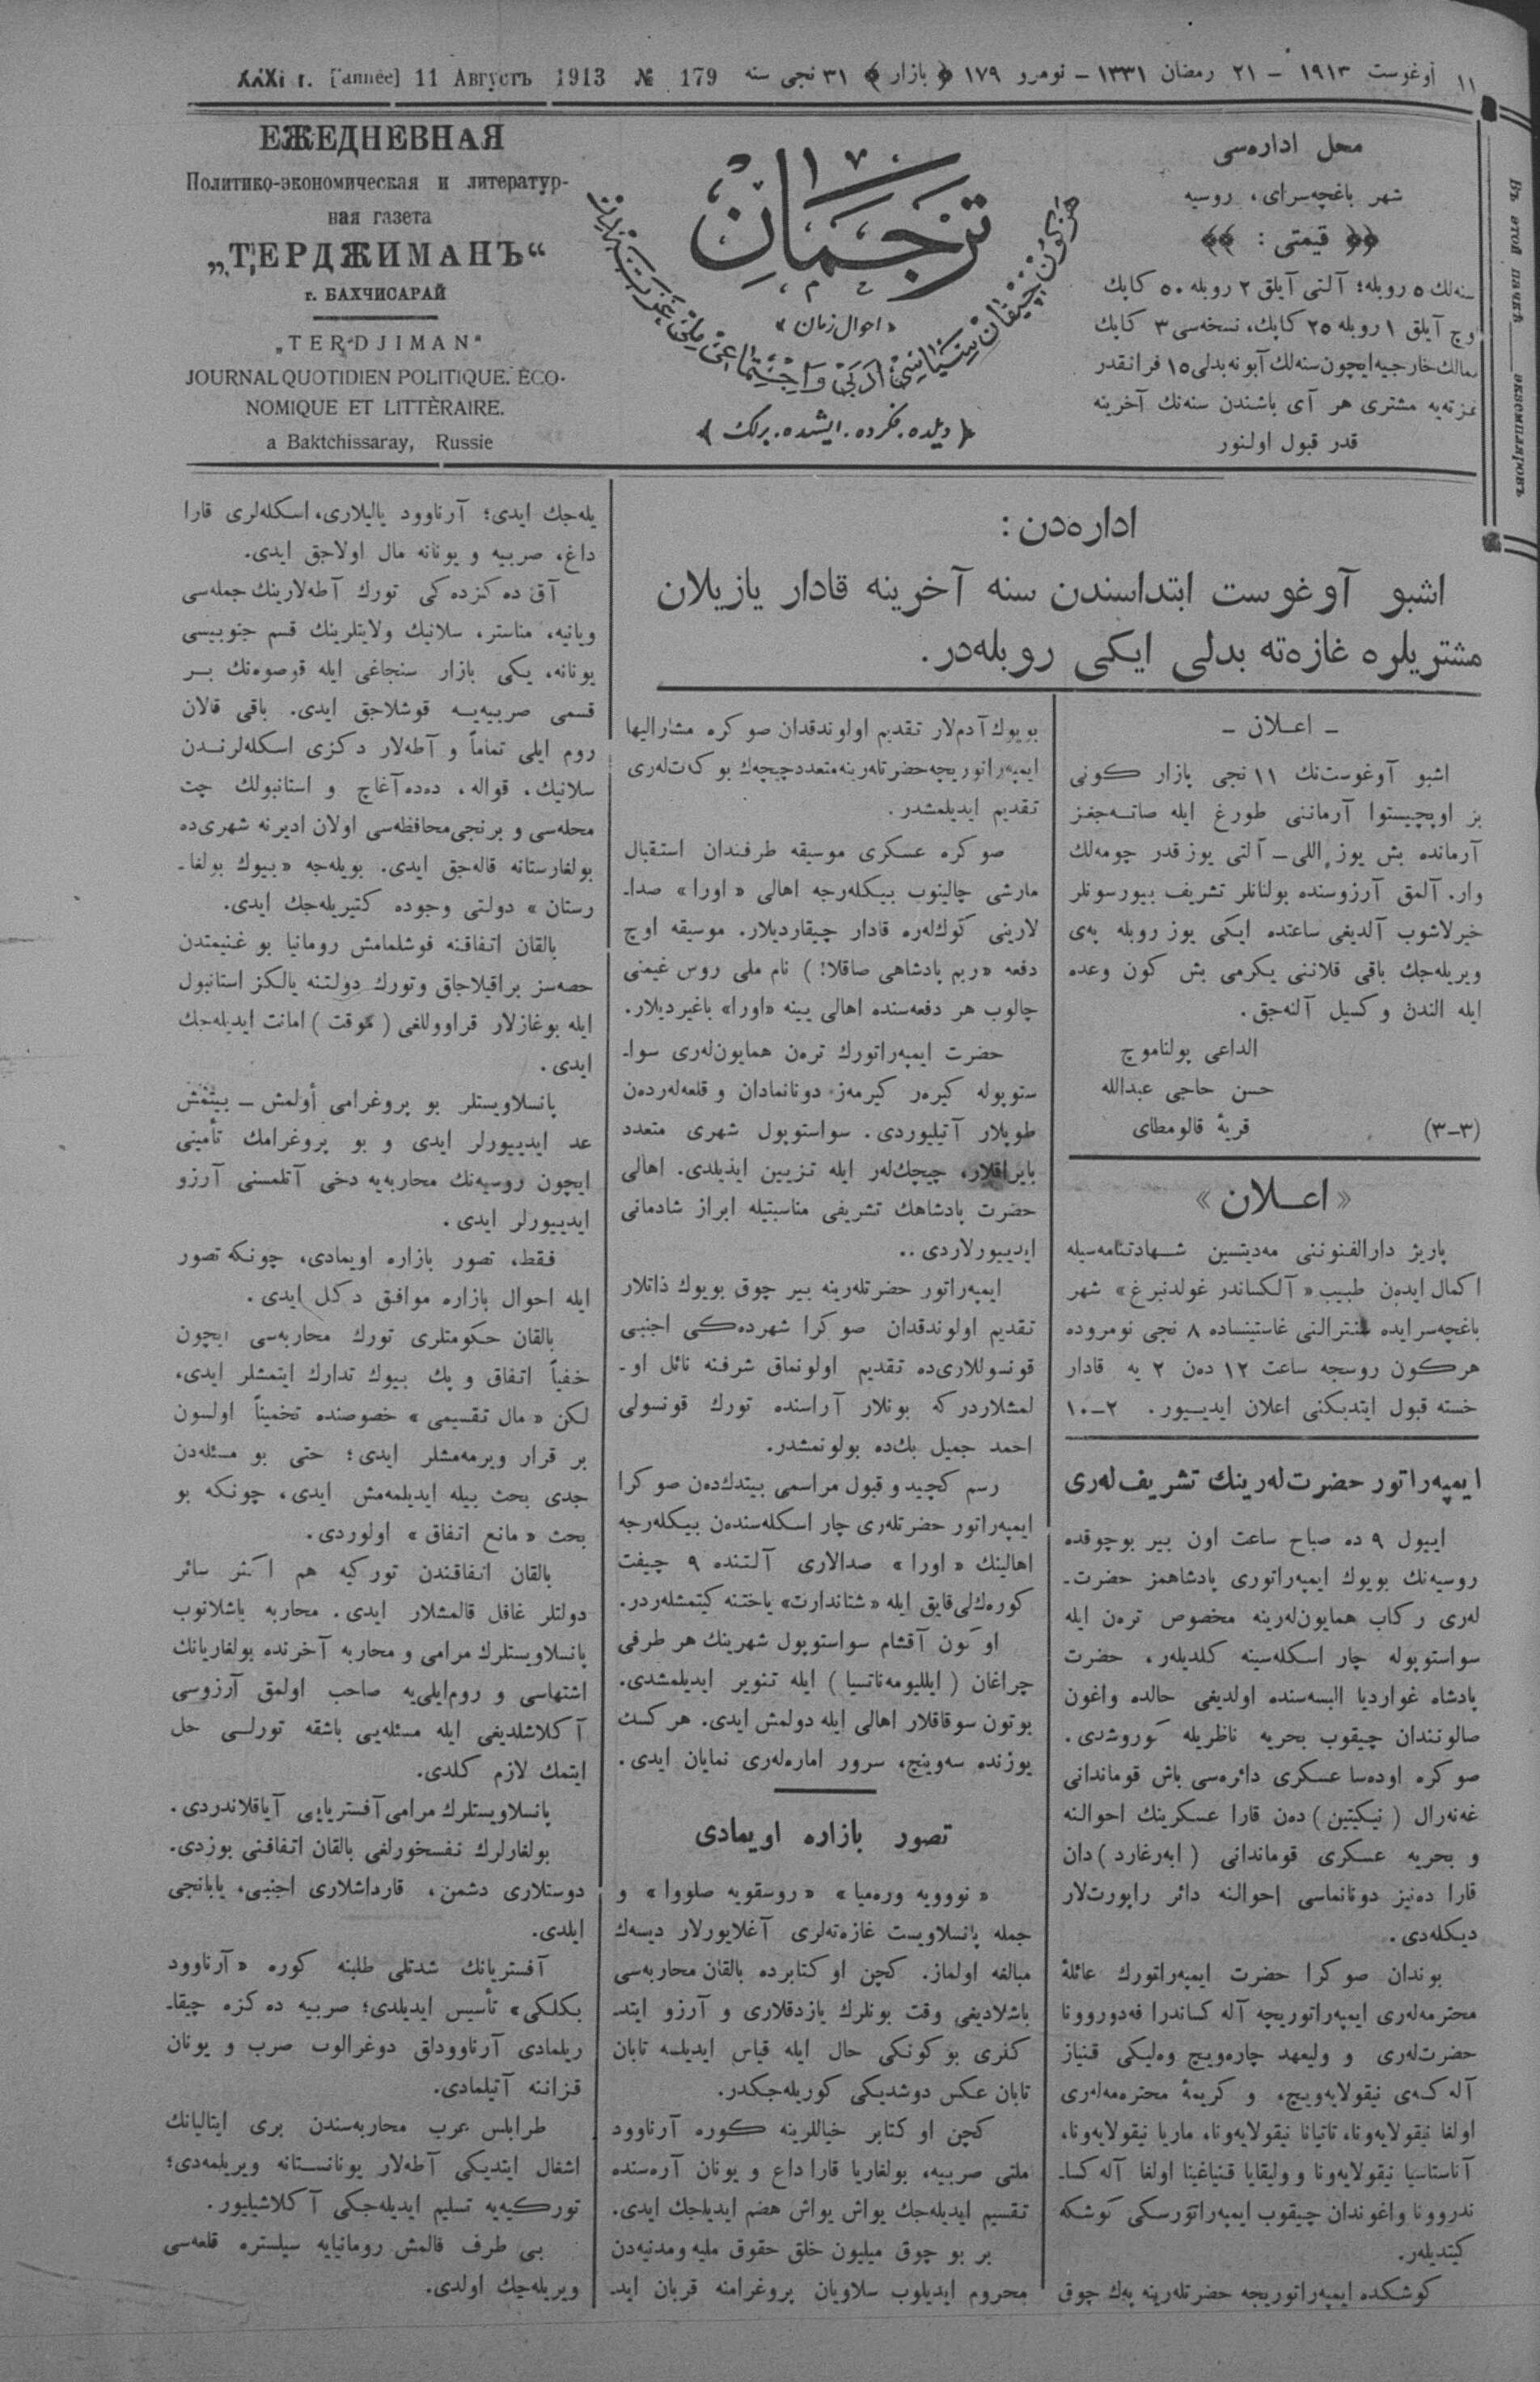 ١١ آوغوست ١٩١٣ – ٢١ رمضان ١٣٣١ – نومرو ١٧٩ ﴿ بازار ﴾ ٣١ نجی سنه
XXXI г. [année] 11 Августъ 1913 № 179
محل اداره‌سی
شهر باغچه‌سرای، روسیه
﴿﴿ قیمتی : ﴾﴾
سنه‌لك ٥ روبله؛ آلتی آیلق ٢ روبله ٥٠ كاپك
اوچ آیلق ١ روبله ٢٥ كاپك، نسخه‌سی ٣ كاپك
ممالك خارجیه ایچون سنه‌لك آبونه بدلی ١٥ فرانقدر
غزته‌یه مشتری هر آی باشندن سنه‌نك آخرینه
قدر قبول اولنور
ترجمان
« احوال زمان »
هر كون چیقان سیاسی، ادبی و اجتماعی ملی غزته‌در
﴿ دیلده. فكرده. ایشده. برلك ﴾
ЕЖЕДНЕВНАЯ
Политико-экономическая и литератур-
ная газета
„ТЕРДЖИМАНЪ“
г. БАХЧИСАРАЙ
„TERDJIMAN“
JOURNAL QUOTIDIEN POLITIQUE. ÈCO-
NOMIQUE ET LITTÈRAIRE.
a Baktchissaray, Russie
Въ этой пачкѣ ____ экземпляровъ
اداره‌دن :
اشبو آوغوست ابتداسندن سنه آخرینه قادار یازیلان
مشتریلره غازه‌ته بدلی ایكی روبله‌در.
– اعـلان –
اشبو آوغوست‌نك ١١ نجی بازار كونی
بز اوپچیستوا آرماننی طورغ ایله صاتـه‌جغز
آرمانده بش یوز اللی – آلتی یوز قدر چومه‌لك
وار. آلمق آرزوسنده بولنانلر تشریف بیورسونلر
خبرلاشوب آلدیغی ساعتده ایكی یوز روبله پەی
ویریله‌جك باقی قلاننی یكرمی بش كون وعده
ایله الندن وكسیل آلنه‌جق.
الداعی پولناموچ
حسن حاجی عبدالله
قریهٔ قالومطای
(٣–٣)
« اعـلان »
پاریژ دارالفنوننی مه‌دیتسین شـهادتنامه‌سیله
اكمال ایده‌ن طبیب « آلكساندر غولدنبرغ » شهر
باغچه‌سرایده سنترالنی غاستینساده ٨ نجی نومروده
هركون روسجه ساعت ١٢ ده‌ن ٢ یه قادار
خسته قبول ایتدیكنی اعلان ایدیـیور. ٢–١٠
ایمپه‌راتور حضرت‌له‌رینك تشریف‌له‌ری
اییول ٩ ده صباح ساعت اون بیر بوچوقده
روسیه‌نك بویوك ایمپه‌راتوری پادشاهمز حضرت‌ـ
له‌ری ركاب همایون‌له‌رینه مخصوص تره‌ن ایله
سواستوپوله چار اسكله‌سینه كلدیله‌ر، حضرت
پادشاه غواردیا البسه‌سنده اولدیغی حالده واغون
صالونندان چیقوب بحریه ناظریله كوروشدی.
صوكره اوده‌سا عسكری دائره‌سی باش قوماندانی
غه‌نه‌رال ( نیكیتین ) ده‌ن قارا عسكرینك احوالنه
و بحریه عسكری قوماندانی ( ابه‌رغارد ) دان
قارا ده‌نیز دونانماسی احوالنه دائر راپورت‌لار
دیكله‌دی.
بوندان صوكرا حضرت ایمپه‌راتورك عائلهٔ
محترمه‌له‌ری ایمپه‌راتوریچه آله كساندرا فه‌دوروونا
حضرت‌له‌ری و ولیعهد چاره‌ویچ وه‌لیكی قنیاز
آله كسه‌ی نیقولایه‌ویچ، و كریمهٔ محترمه‌له‌ری
اولغا نیقولایه‌ونا، تاتیانا نیقولایه‌ونا، ماریا نیقولایه‌ونا،
آناستاسیا نیقولایه‌ونا و ولیقایا قنیاغینا اولغا آله كسا‌ـ
ندروونا واغوندان چیقوب ایمپه‌راتورسكی كوشكه
كیتدیله‌ر.
كوشكده ایمپه‌راتوریچه حضرتله‌رینه پەك چوق
بویوك آدم‌لار تقدیم اولوندقدان صوكره مشارالیها
ایمپه‌راتوریچه حضرتله‌رینه متعدد چیچه‌ك بوكه‌ت‌له‌ری
تقدیم ایدیلمشدر.
صوكره عسكری موسیقه طرفندان استقبال
مارشی چالینوب بیكله‌رجه اهالی « اورا » صدا‌ـ
لارینی كوك‌له‌ره قادار چیقاردیلار. موسیقه اوچ
دفعه « ربم پادشاهی صاقلا! ) نام ملی روس غیمنی
چالوب هر دفعه‌سنده اهالی یینه « اورا » باغیردیلار.
حضرت ایمپه‌راتورك تره‌ن همایون‌له‌ری سوا‌ـ
ستوپوله كیره‌ر كیرمه‌ز دونانمادان و قلعه‌له‌رده‌ن
طوپلار آتیلیوردی. سواستوپول شهری متعدد
بایراقلار، چیچك‌له‌ر ایله تزیین ایدیلدی. اهالی
حضرت پادشاهك تشریفی مناسبتیله ابراز شادمانی
ایدییورلاردی..
ایمپه‌راتور حضرتله‌رینه بیر چوق بویوك ذاتلار
تقدیم اولوندقدان صوكرا شهرده‌كی اجنبی
قونسوللاری‌ده تقدیم اولونماق شرفنه نائل او‌ـ
لمشلاردر كه بونلار آراسنده تورك قونسولی
احمد جمیل بك‌ده بولونمشدر.
رسم كچید و قبول مراسمی بیتدكده‌ن صوكرا
ایمپه‌راتور حضرتله‌ری چار اسكله‌سنده‌ن بیكله‌رجه
اهالینك « اورا » صدالاری آلتنده ٩ چیفت
كوره‌ك‌لی قایق ایله « شتاندارت » یاختنه كیتمشله‌ردر.
او كون آقشام سواستوپول شهرینك هر طرفی
چراغان ( ایللیومه‌ناتسیا ) ایله تنویر ایدیلمشدی.
بوتون سوقاقلار اهالی ایله دولمش ایدی. هركسك
یوزنده سه‌وینج، سرور اماره‌له‌ری نمایان ایدی.
تصور بازاره اویمادی
« نوویه وره‌میا » « روسقویه صلووا » و
جمله پانسلاویست غازه‌ته‌لری آغلایورلار دیسه‌ك
مبالغه اولماز. كچن اوكتابرده بالقان محاربه‌سی
باشلادیغی وقت بونلرك یازدقلاری و آرزو ایتد‌ـ
كلری بوكونكی حال ایله قیاس ایدیلسه تابان
تابان عكس دوشدیكی كوریله‌جكدر.
كچن اوكتابر خیاللرینه كوره آرناوود
ملتی صربیه، بولغاریا قاراداغ و یونان آره‌سنده
تقسیم ایدیله‌جك یواش یواش هضم ایدیلجك ایدی.
بر بو چوق میلیون خلق حقوق ملیه ومدنیه‌دن
محروم ایدیلوب سلاویان پروغرامنه قربان اید‌ـ
یله‌جك ایدی؛ آرناوود یالیلاری، اسكله‌لری قارا
داغ، صربیه و یونانه مال اولاجق ایدی.
آق ده‌كزده‌كی تورك آطه‌لارینك جمله‌سی
ویانیه، مناستر، سلانیك ولایتلرینك قسم جنوبیسی
یونانه، یكی بازار سنجاغی ایله قوصوه‌نك بـر
قسمی صربیه‌یـه قوشلاجق ایدی. باقی قالان
روم ایلی تماماً و آطه‌لار دكزی اسكله‌لرنـدن
سلانیك، قواله، ده‌ده‌آغاچ و استانبولك چت
محله‌سی و برنجی محافظه‌سی اولان ادیرنه شهری‌ده
بولغارستانه قاله‌جق ایدی. بویله‌جه « بیوك بولغا‌ـ
رستان » دولتی وجوده كتیریله‌جك ایدی.
بالقان اتفاقنه قوشلمامش رومانیا بو غنیمتدن
حصه‌سز براقیلاجاق وتورك دولتنه یالكز استانبول
ایله بوغازلار قراووللغی ( موقت ) امانت ایدیله‌جك
ایدی.
پانسلاویستلر بو پروغرامی أولمش – بیتمش
عد ایدییورلر ایدی و بو پروغرامك تأمینی
ایچون روسیه‌نك محاربه‌یه دخی آتلمسنی آرزو
ایدییورلر ایدی.
فـقط، تصور بازاره اویمادی، چونكه تصور
ایله احوال بازاره موافق دكل ایدی.
بالقان حكومتلری تورك محاربه‌سی ایچون
خفیاً اتفاق و پك بیوك تدارك ایتمشلر ایدی،
لكن « مال تقسیمی » خصوصنده تخمیناً اولسون
بر قرار ویرمه‌مشلر ایدی؛ حتی بو مسئله‌دن
جدی بحث بیله ایدیلمه‌مش ایدی، چونكه بو
بحث « مانع اتفاق » اولوردی.
بالقان اتفاقندن توركیه هم اكثر سائر
دولتلر غافل قالمشلار ایدی. محاربه باشلانوب
پانسلاویستلرك مرامی و محاربه آخرنده بولغاریانك
اشتهاسی و روم‌ایلی‌یه صاحب اولمق آرزوسی
آكلاشلدیغی ایله مسئله‌یی باشقه تورلـی حل
ایتمك لازم كلدی.
پانسلاویستلرك مرامی آفستریایی آیاقلاندردی.
بولغارلرك نفسخورلغی بالقان اتفاقنی بوزدی.
دوستلاری دشمن، قارداشلاری اجنبی، یابانجی
ایلدی.
آفستریانك شدتلی طلبنه كوره « آرناوود
بكلكی » تأسیس ایدیلدی؛ صربیه ده‌كزه چیقا‌ـ
ریلمادی آرناوودلق دوغرالوب صرب و یونان
قزاننه آتیلمادی.
طرابلس عرب محاربه‌سندن بری ایتالیانك
اشغال ایتدیكی آطه‌لار یونانسـتانه ویریلمه‌دی؛
توركیه‌یه تسلیم ایدیله‌جكی آكلاشیلیور.
بی طرف قالمش رومانیایه سیلستره قلعه‌سی
ویریله‌جك اولدی.